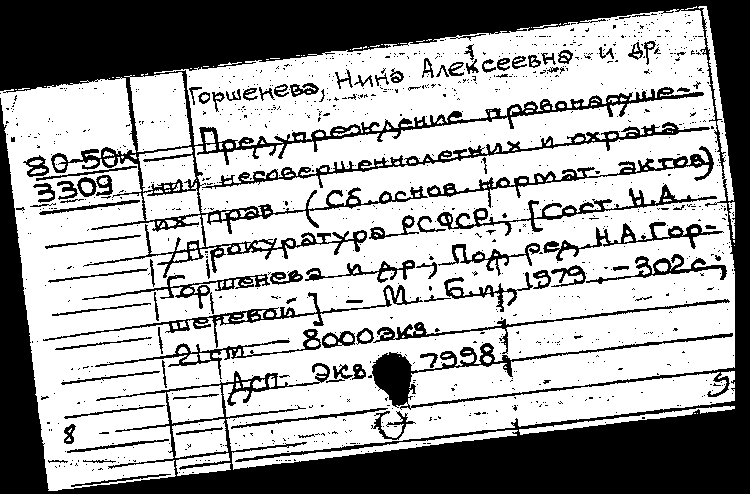 Горшенева, Нина Алексеевна и др
80-50к
3309
Предупреждение правонаруше-
ний несовершеннолетних и охрана
их прав: (Сб. основ. нормат. актов)
/Прокуратура РСФСР; [Сост. Н.А.
Горшенева и др; Под ред. Н.А. Гор-
шеневой]. - М.: Б.и., 1979. - 302с;
21см. - 8000экз.
Дсп. Экз. 7998.
8